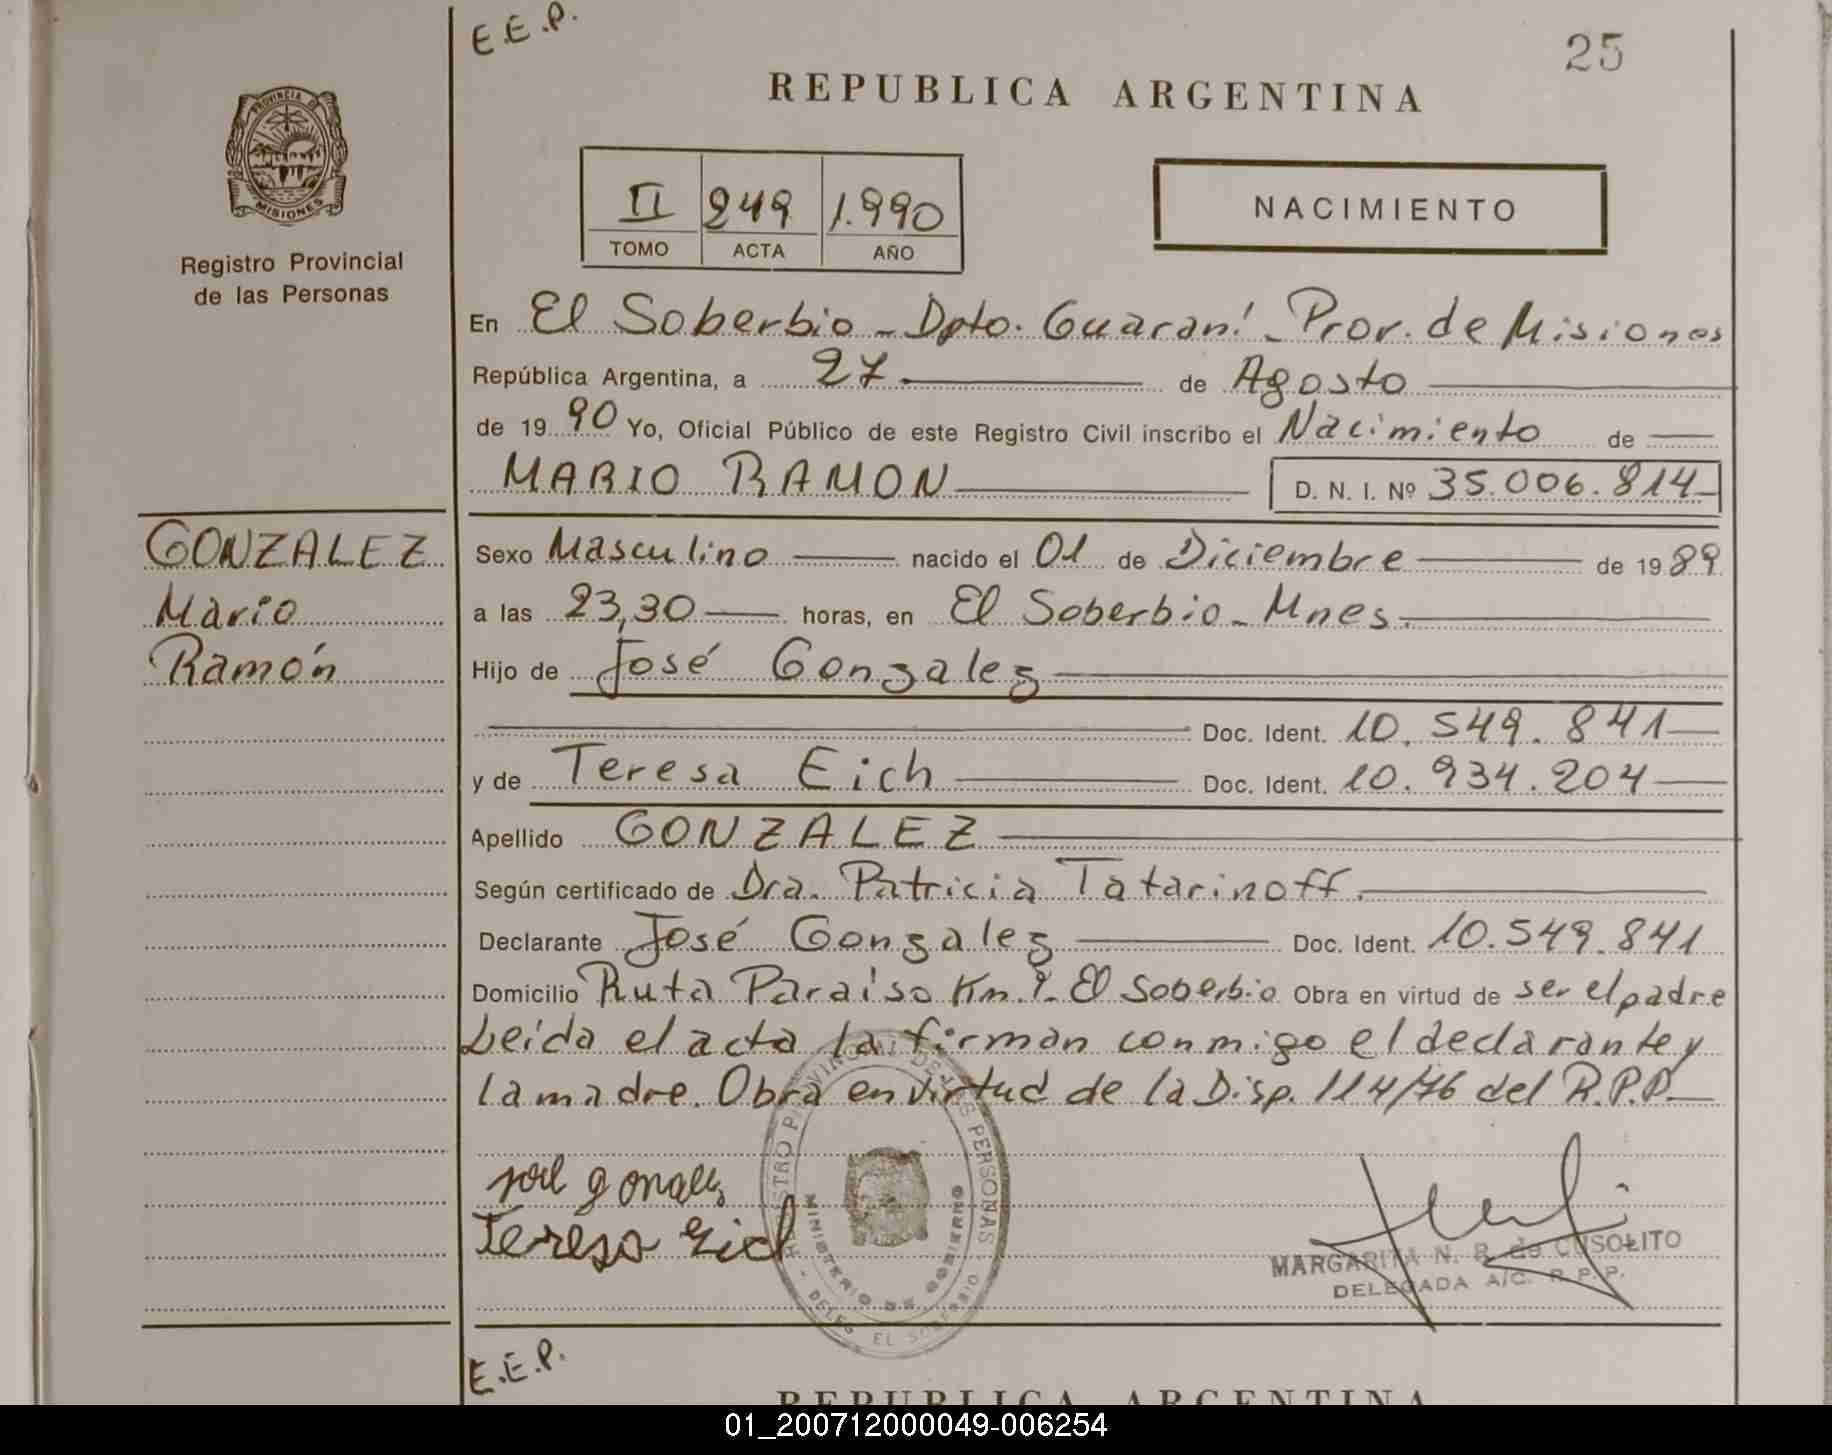 E.E.P.
25
REPUBLICA ARGENTINA
PROVINCIA DE
MISIONES
Registro Provincial
de las Personas
II 249 1.990
TOMO ACTA AÑO
NACIMIENTO
En El Soberbio - Dpto. Guaraní - Prov. de Misiones
República Argentina, a 27 de Agosto
de 19 90 Yo, Oficial Público de este Registro Civil inscribo el Nacimiento de
MARIO RAMON D. N. I. Nº 35.006.814
GONZALEZ
Mario
Ramón
Sexo Masculino nacido el 01 de Diciembre de 19 89
a las 23,30 horas, en El Soberbio - Mnes.
Hijo de José Gonzalez
Doc. Ident. 10.549.841
y de Teresa Eich Doc. Ident. 10.934.204
Apellido GONZALEZ
Según certificado de Dra. Patricia Tatarinoff.
Declarante José Gonzalez Doc. Ident. 10.549.841
Domicilio Ruta Paraíso Km. El Soberbio Obra en virtud de ser el padre
Leída el acta la firman conmigo el declarante y
la madre. Obra en virtud de la Disp. 114/76 del R.P.P.
REGISTRO PROVINCIAL DE LAS PERSONAS
MINISTERIO DE GOBIERNO
DELEG. EL SOBERBIO
Teresa Eich
MARGARITA N. R. de CUSOLITO
DELEGADA A/C. R.P.P.
E.E.P.
REPUBLICA ARGENTINA
01_200712000049-006254